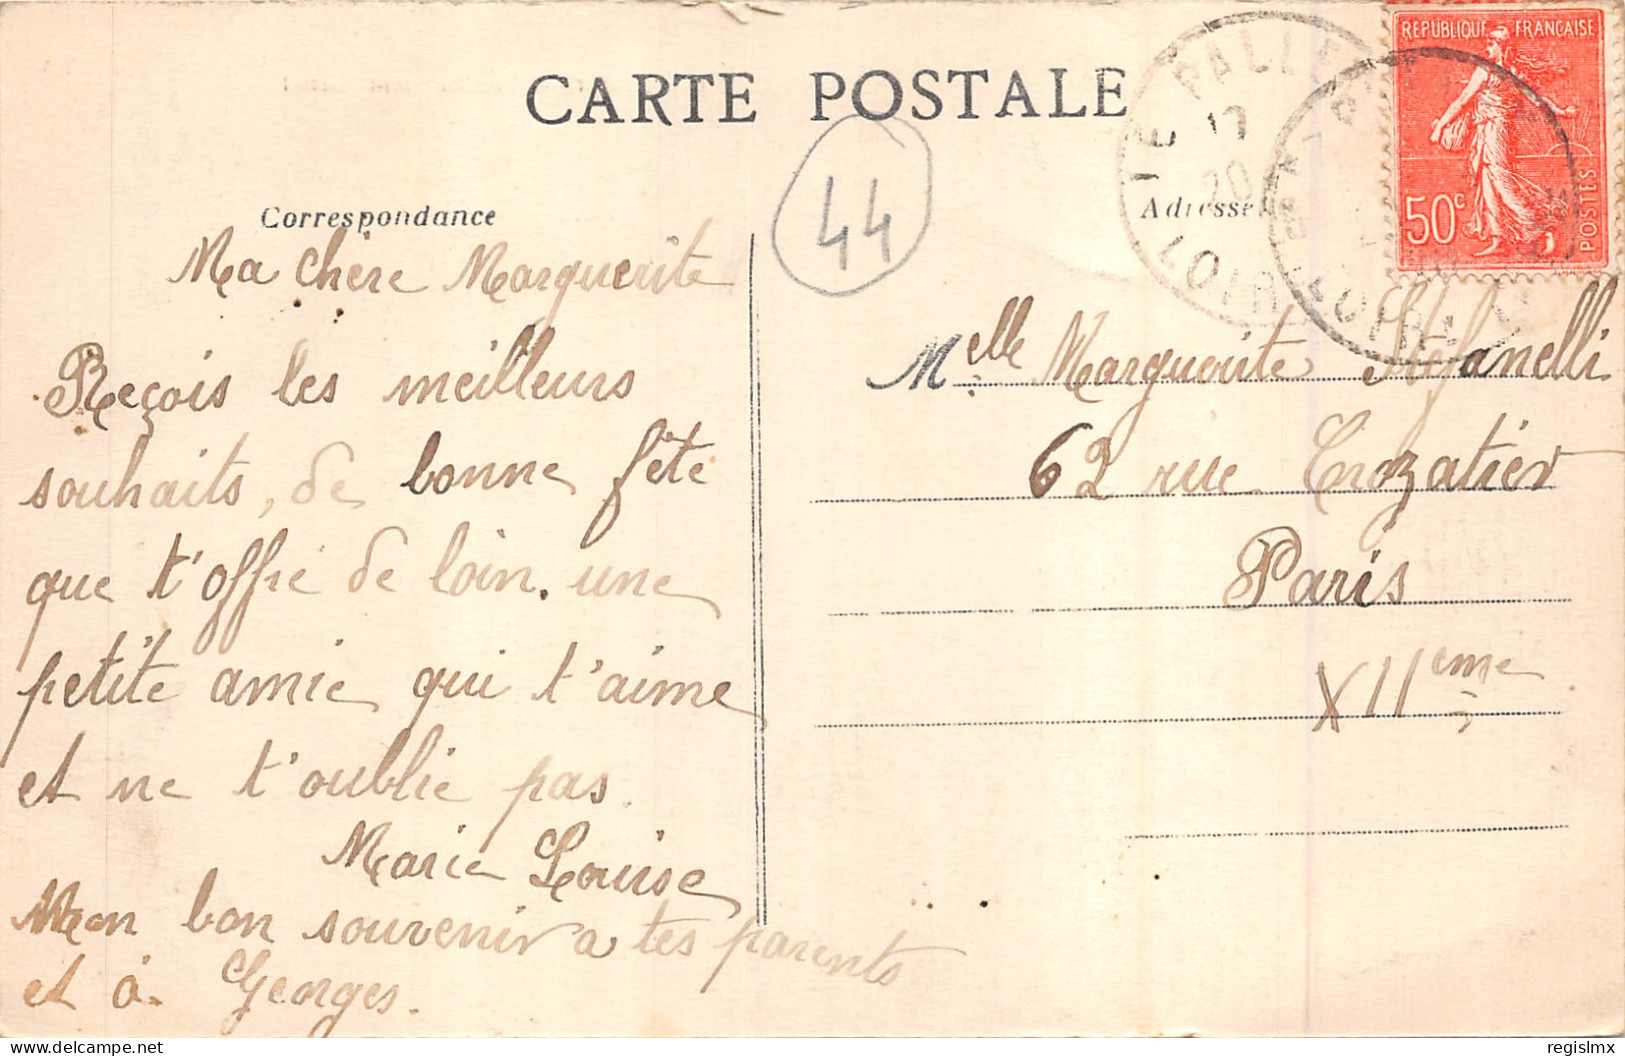 CARTE POSTALE
RÉPUBLIQUE FRANÇAISE
50c
POSTES
LE PALLET
17
20
LOIR
LOIRE
44
Correspondance
Adresse
Ma chère Marguerite
Reçois les meilleurs
souhaits, de bonne fête
que t'offre de loin. une
petite amie qui t'aime
et ne t'oublie pas.
Marie Louise
Mon bon souvenir a tes parents
et à Georges.
Melle Marguerite Stefanelli
62 rue Crozatier
Paris
XIIeme
regislmx
delcampe.net